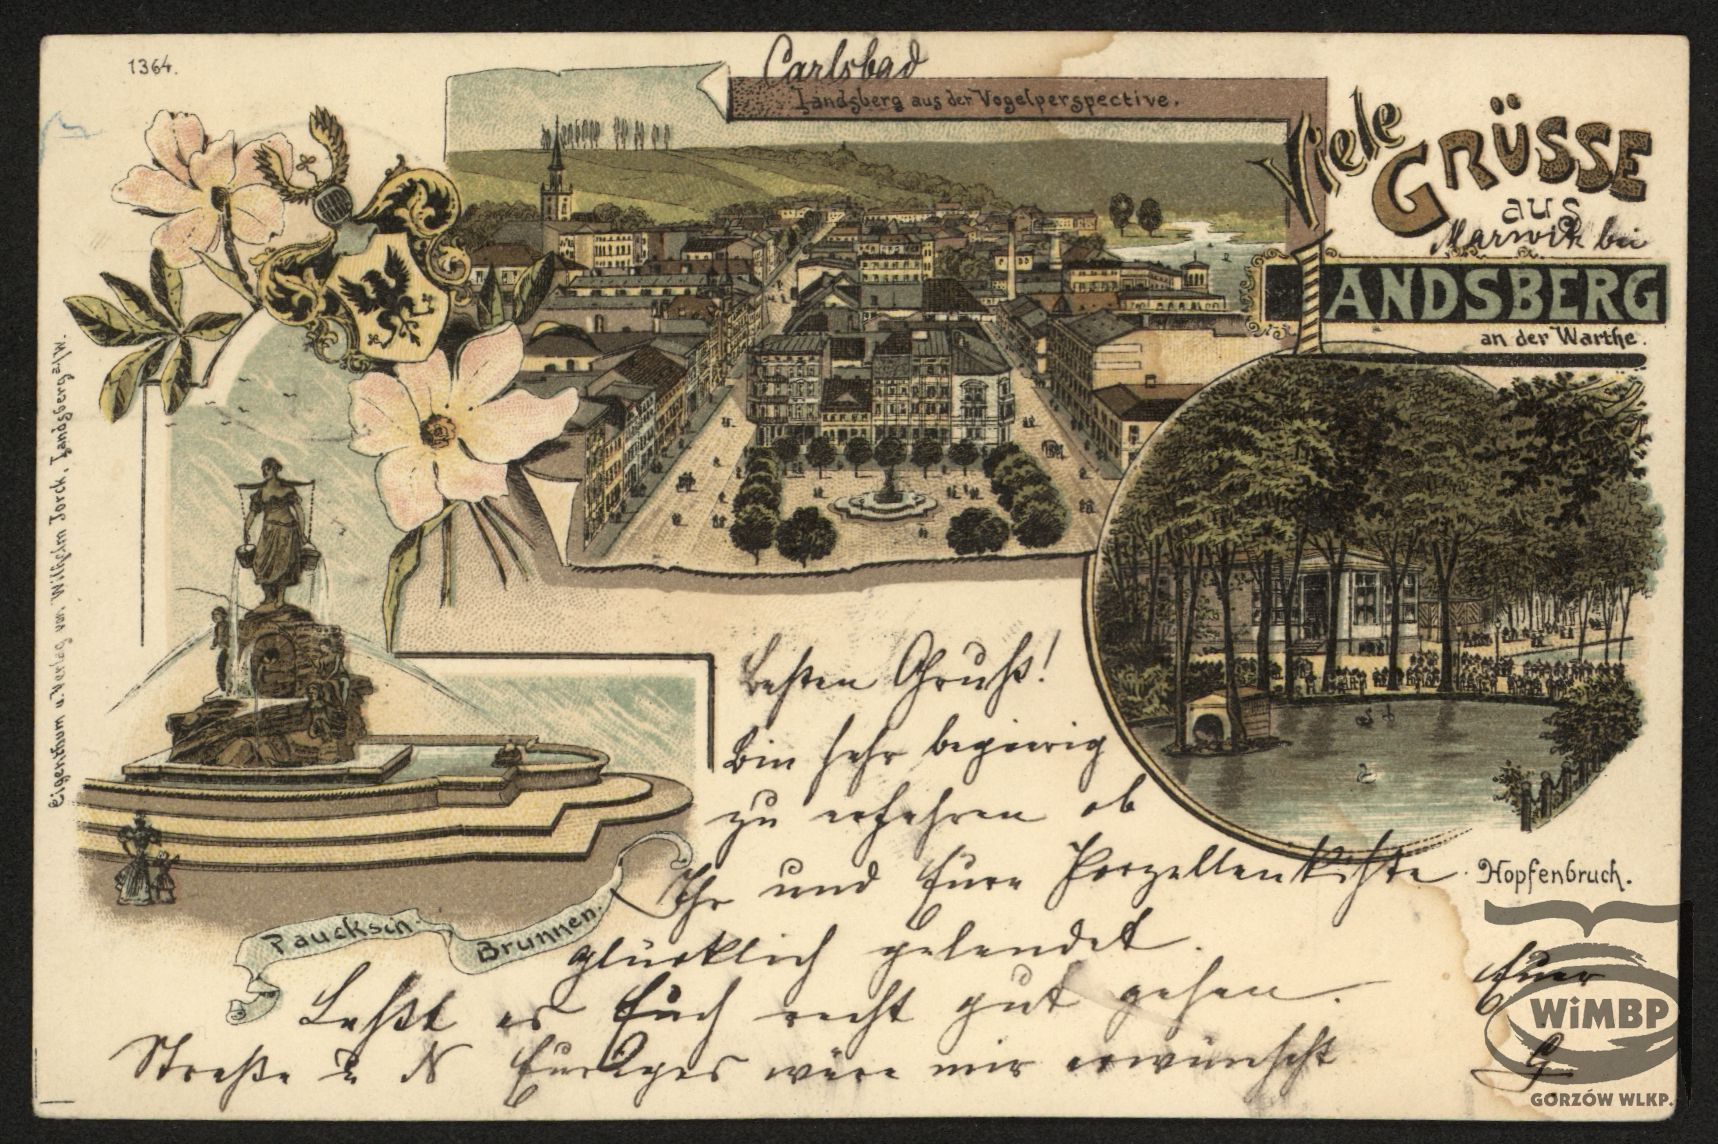 1364.
Carlsbad
Landsberg aus der Vogelperspective.
Viele
GRÜSSE
aus
Marwitz bei
LANDSBERG
an der Warthe.
Eigenthum u. Verlag von Wilhelm Jorck, Landsberg a/W.
Besten Gruß!
bin sehr begierig
zu erfahren ob
Ihr und Eure Porzellankiste
glücklich gelandet.
Hopfenbruch.
Paucksch-
Brunnen.
Laßt es Euch recht gut gehen.
Euer
G.
Straße u. N Eures wäre mir erwünscht
WiMBP
GORZÓW WLKP.